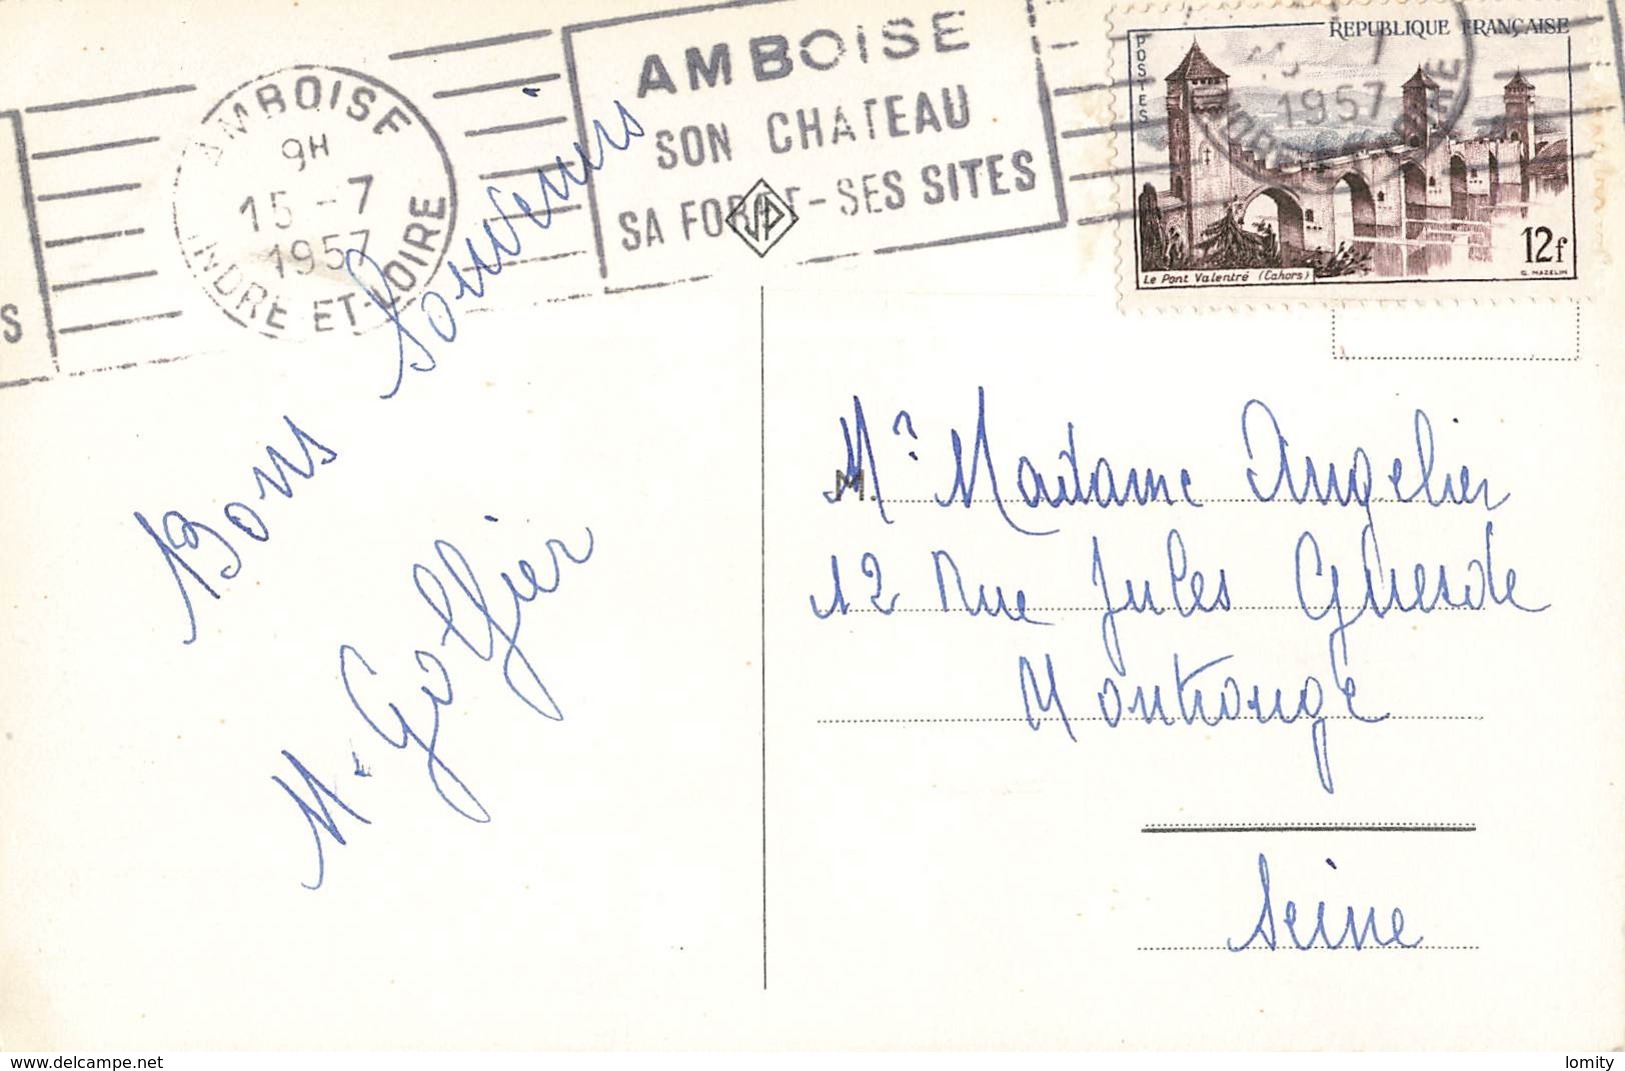 AMBOISE
9H
15 -7
1957
INDRE ET-LOIRE
AMBOISE
SON CHATEAU
SA FORET-SES SITES
S
REPUBLIQUE FRANÇAISE
POSTES
1957
INDRE ET LOIRE
12f
Le Pont Valentré (Cahors)
G. MAZELIN
Bons Souvenirs
M. Golfier
M.
Mr Madame Angelier
12 Rue Jules Guesde
Montrouge
Seine
www.delcampe.net
lomity